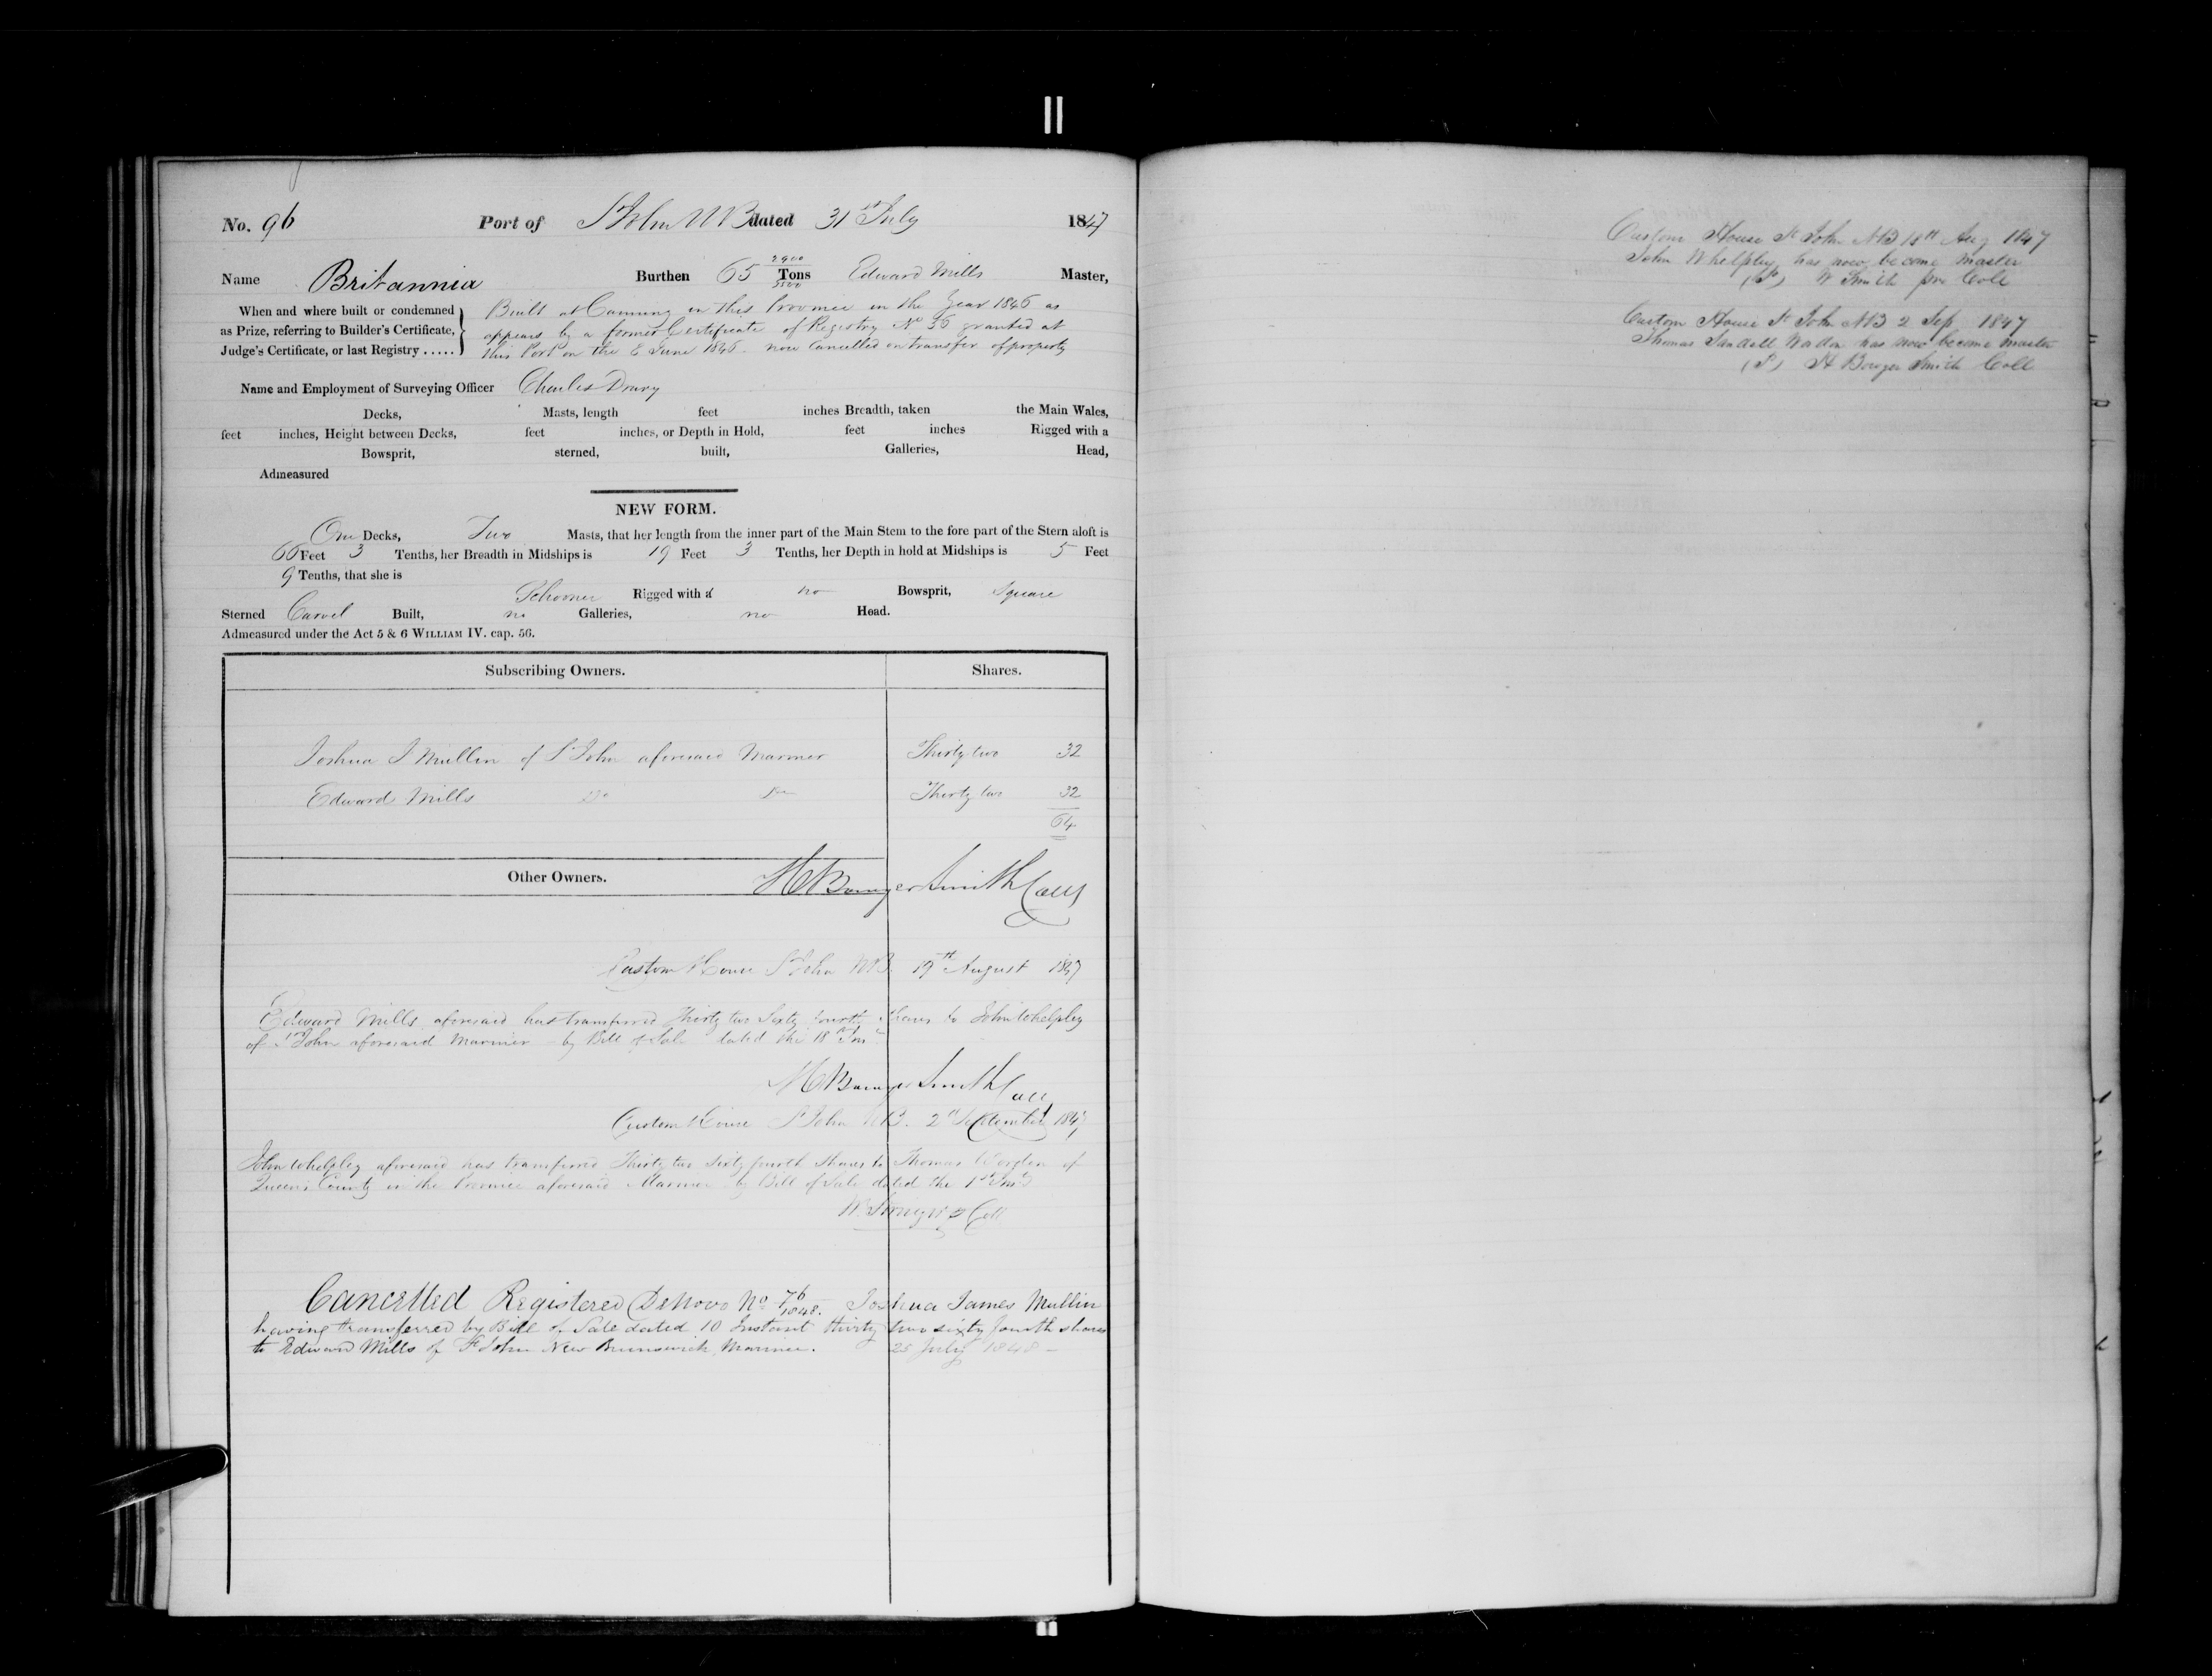 No. 96 Port of St John NB dated 31st July 1847
Name Britannia Burthen 65 2900/3500 Tons Edward Mills Master,
When and where built or condemned as Prize, referring to Builder's Certificate, Judge's Certificate, or last Registry .....
Built at Canning in this Province in the Year 1846 as
appears by a former Certificate of Registry No 56 granted at
this Port on the June 1846 now Cancelled on transfer of property
Name and Employment of Surveying Officer Charles Drury
Decks, Masts, length feet inches Breadth, taken the Main Wales,
feet inches, Height between Decks, feet inches, or Depth in Hold, feet inches Rigged with a
Bowsprit, sterned, built, Galleries, Head,
Admeasured
NEW FORM.
One Decks, Two Masts, that her length from the inner part of the Main Stem to the fore part of the Stern aloft is
66 Feet 3 Tenths, her Breadth in Midships is 19 Feet 3 Tenths, her Depth in hold at Midships is 5 Feet
9 Tenths, that she is
Schooner Rigged with a no Bowsprit, Square
Sterned Carvel Built, no Galleries, no Head.
Admeasured under the Act 5 & 6 WILLIAM IV. cap. 56.
Subscribing Owners. Shares.
Joshua J Mullin of St John aforesaid Mariner Thirty two 32
Edward Mills Do Do Thirty two 32
64
Other Owners. H Bowyer Smith Coll
Custom House St John NB. 19th August 1847
Edward Mills aforesaid has transferred Thirty two Sixty fourth Shares to John Whelpley
of St John aforesaid Mariner by Bill of Sale dated the 18th Inst
H Bowyer Smith Coll
Custom House St John NB. 2nd September 1847
John Whelpley aforesaid has transferred Thirty two Sixty fourth Shares to Thomas Worden of
Queen's County in the Province aforesaid Mariner by Bill of Sale dated the 1st Inst
Coll
Cancelled Registered De Novo No 76/1848. Joshua James Mullin
having transferred by Bill of Sale dated 10 Instant thirty two sixty fourth shares
to Edward Mills of St John New Brunswick Mariner. 25 July 1848 -
Custom House St John NB 18th Aug 1847
John Whelpley has now become master
(Sd) W Smith pro Coll
Custom House St John NB 2 Sep 1847
Thomas Sandall Wordon has now become master
(Sd) H Bowyer Smith Coll